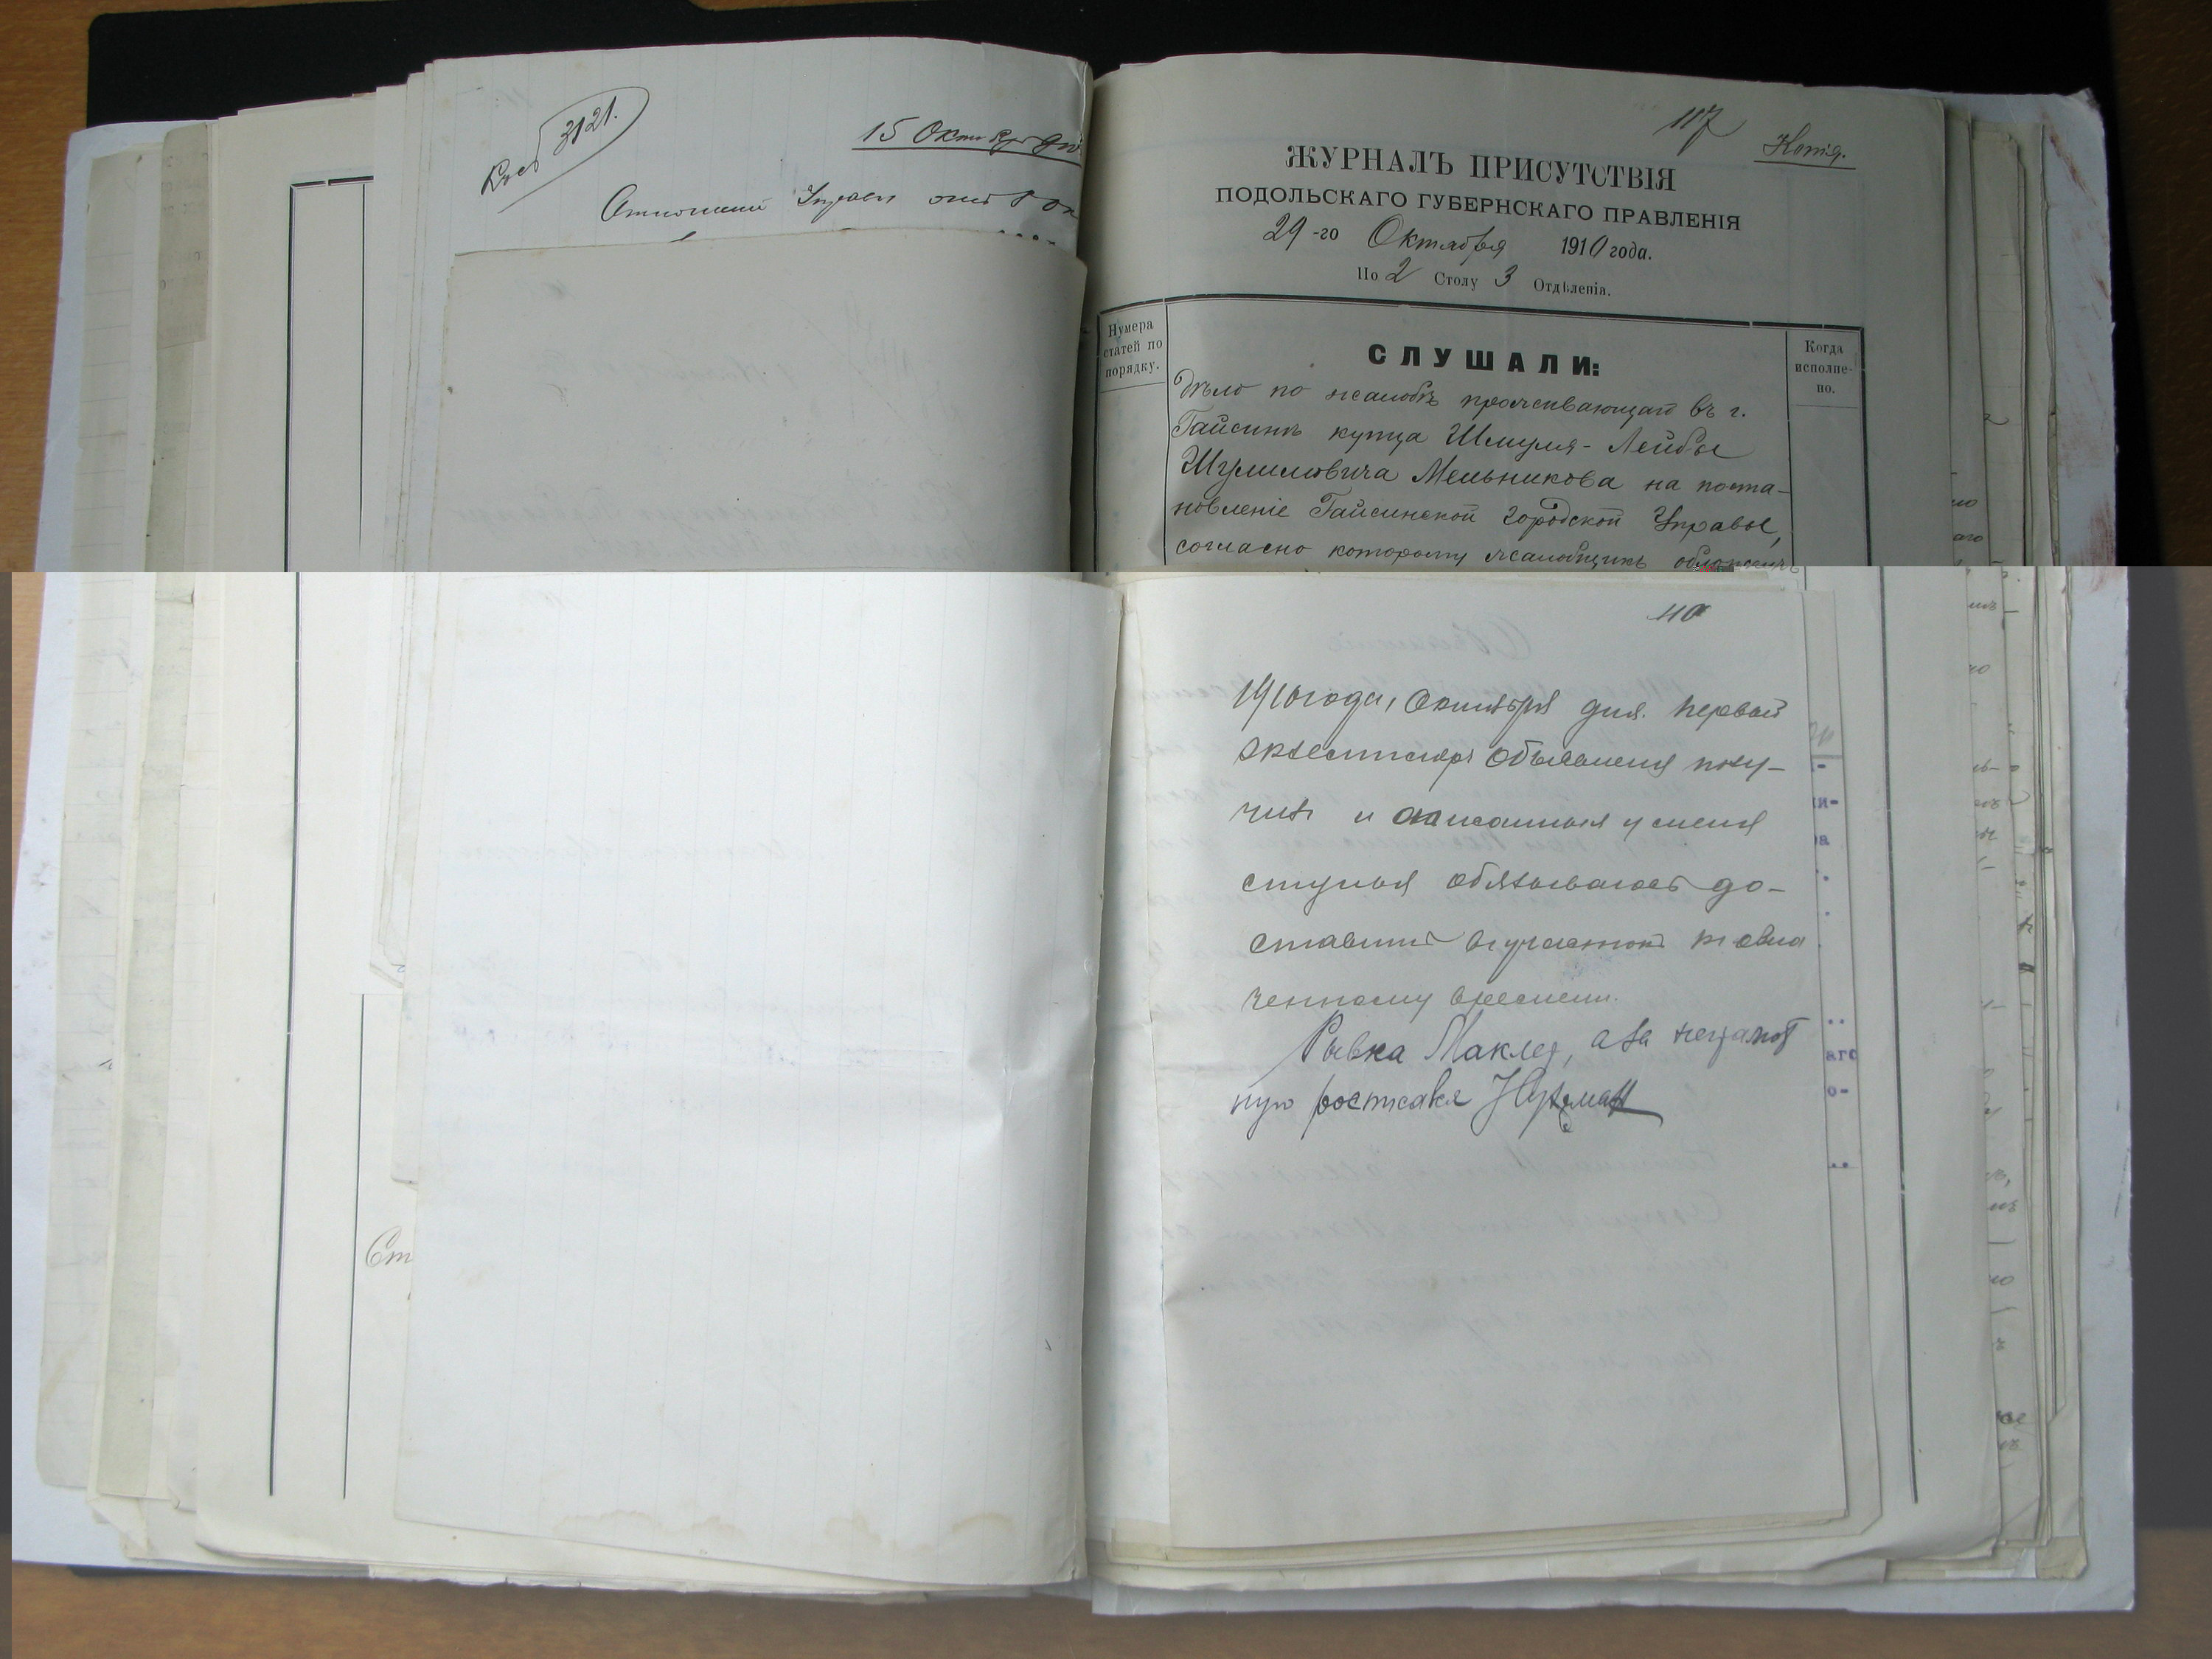 3121.
15 Октября
117
Копія.
ЖУРНАЛЪ ПРИСУТСТВІЯ
ПОДОЛЬСКАГО ГУБЕРНСКАГО ПРАВЛЕНІЯ
29-го Октября 1910 года.
По 2 Столу 3 Отдѣленія.
Нумера
статей по
порядку.
СЛУШАЛИ:
Когда
исполне-
но.
Дѣло по жалобѣ проживающаго въ г.
Гайсинѣ купца Шмуля-Лейбы
Шулимовича Мельникова на поста-
новленіе Гайсинской Городской Управы,
согласно которому жалобщикъ обложенъ
110
1910 года, Октября дня. первый
экземпляръ Объявленія полу-
чилъ и описанныя у меня
стулья обязываюсь до-
ставить въ участокъ къ озна
ченному времени.
Рывка Маклер, а за неграмот
ную
Ст
аго
о-